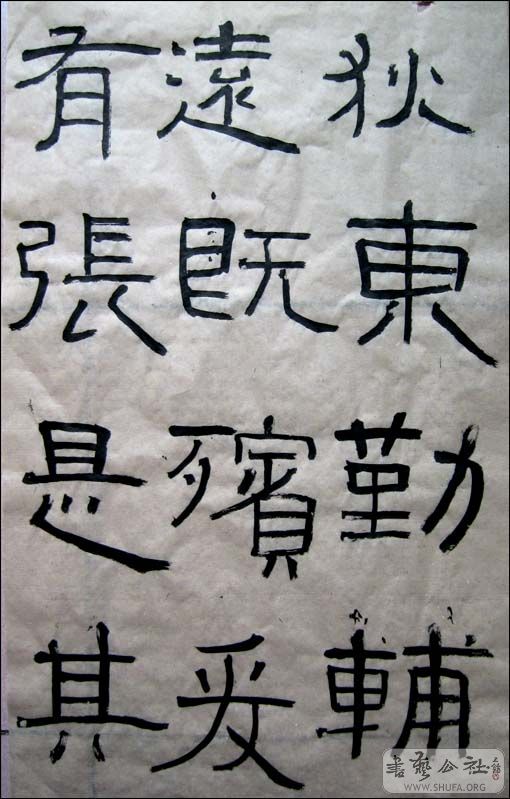 狄東勤輔
遠既殯爰
有張是其
書藝公社
WWW.SHUFA.ORG